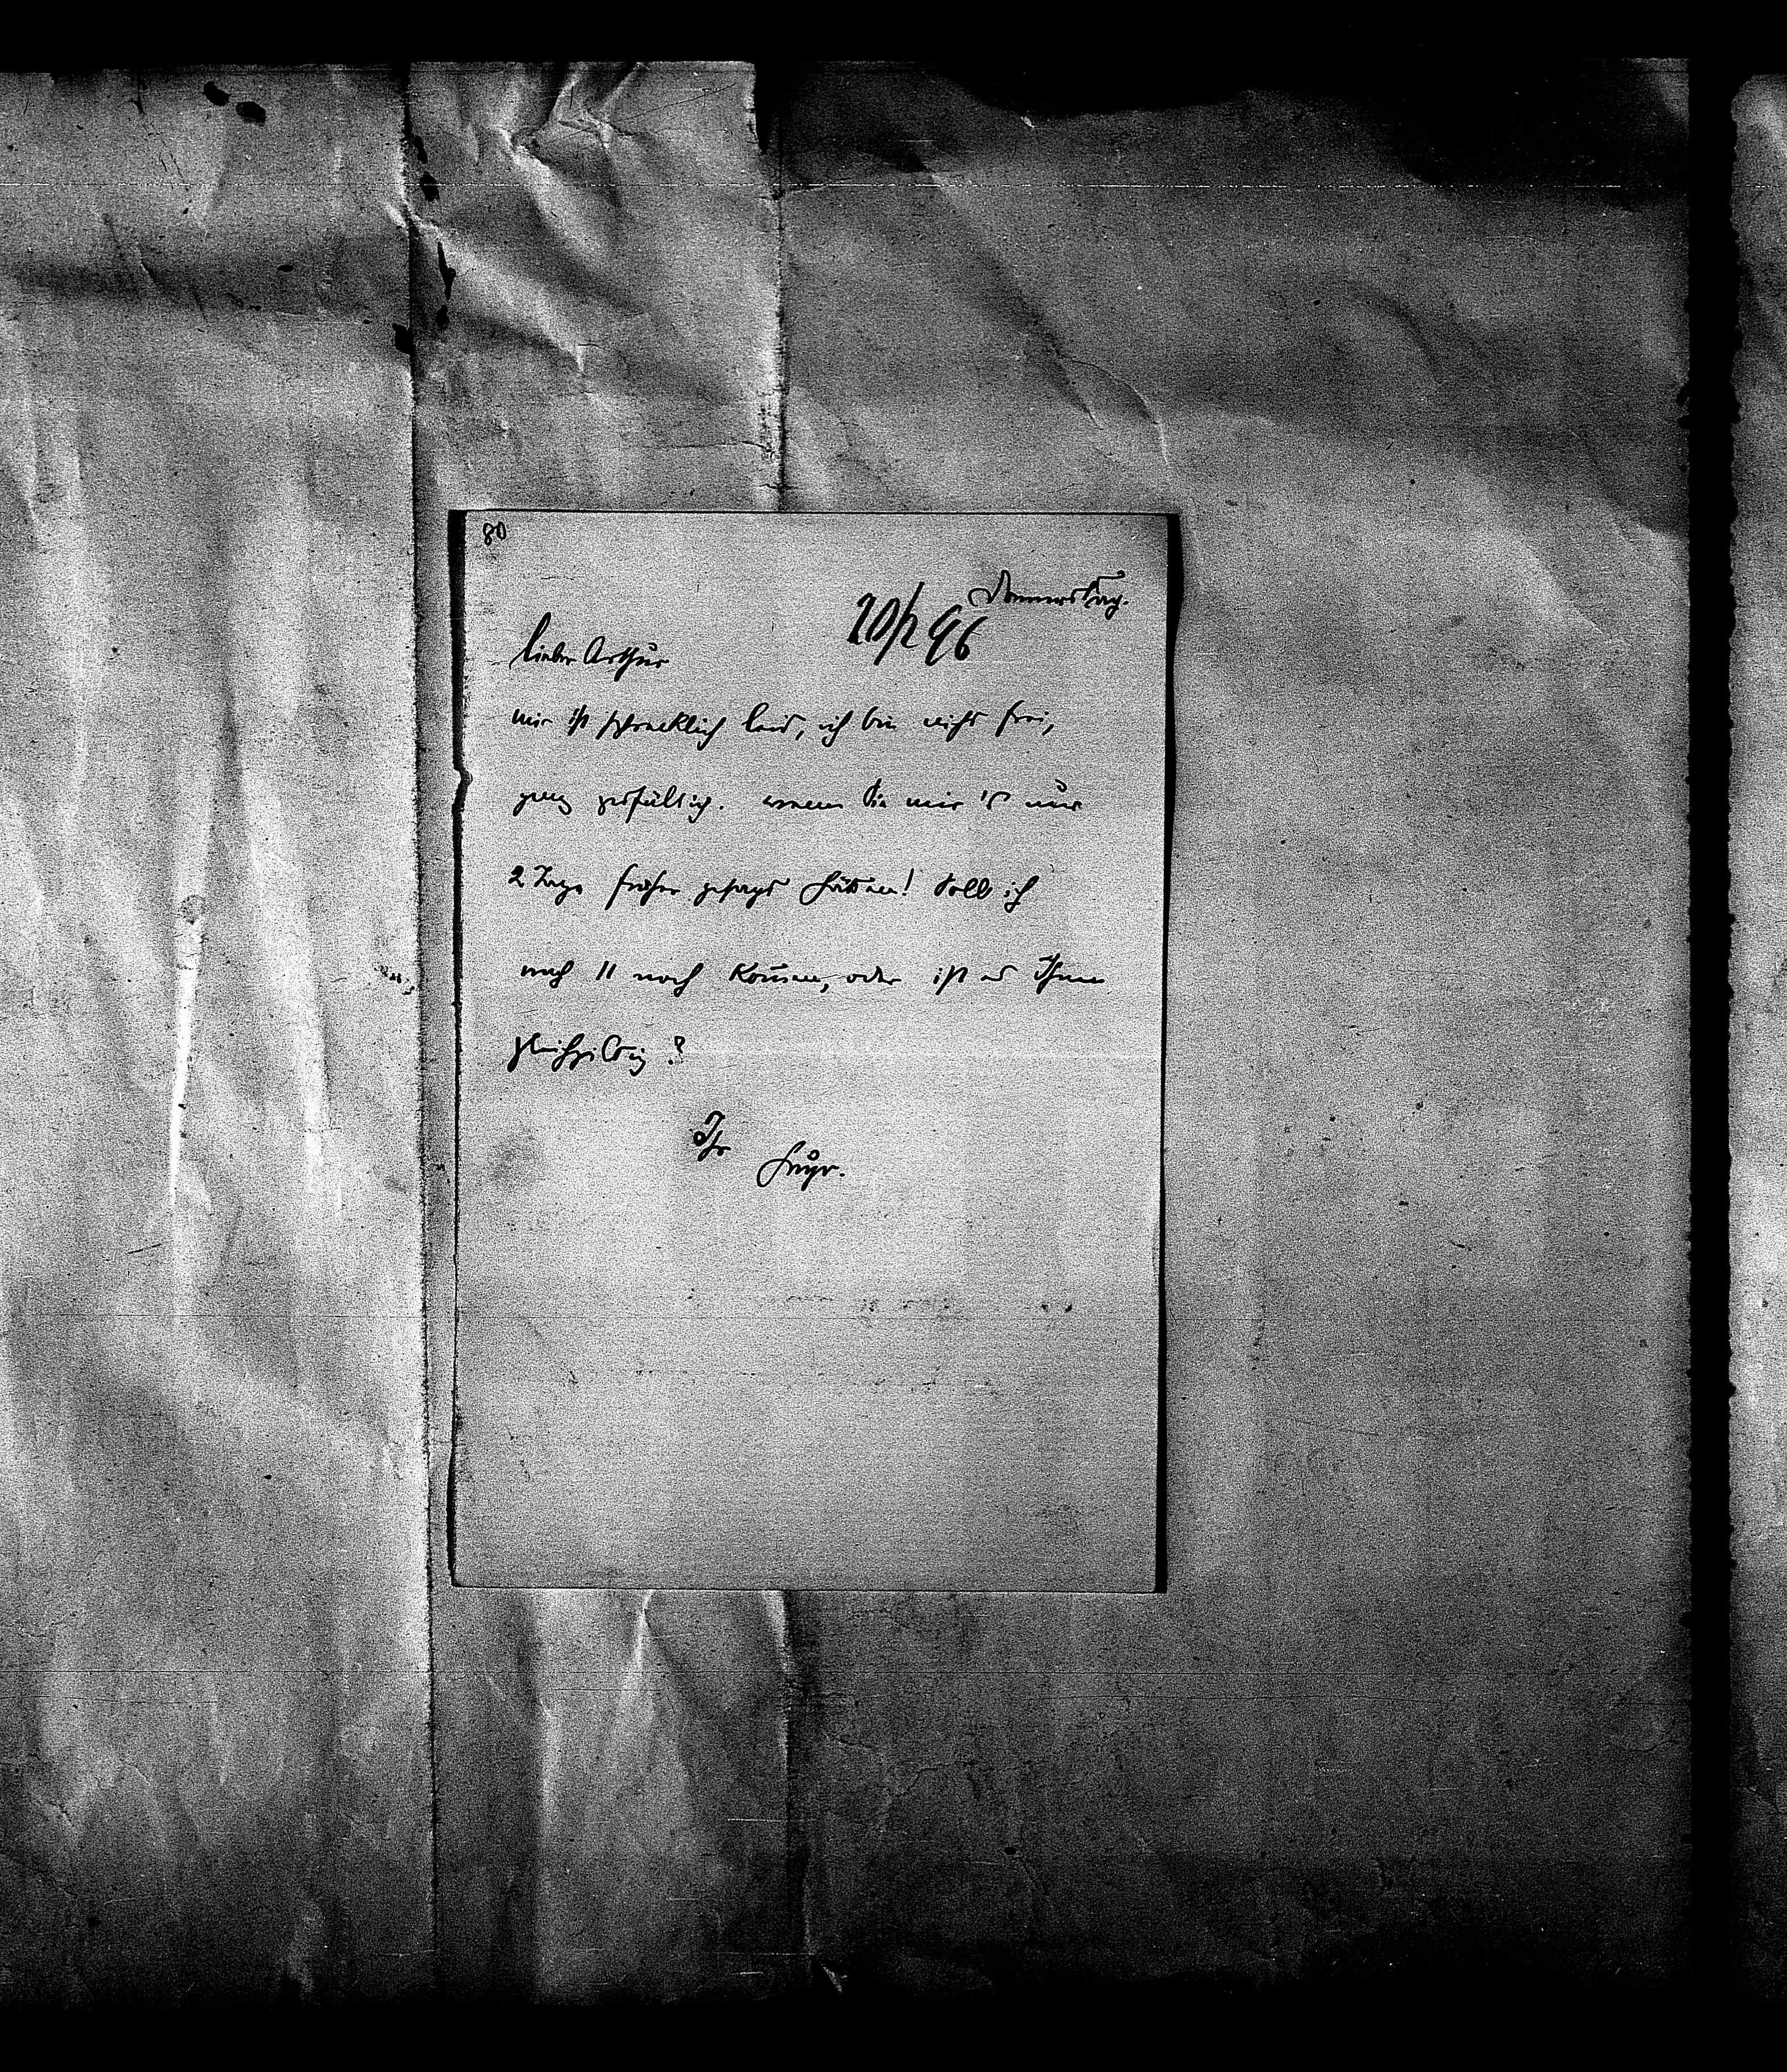 80
Donnerstag.
20/2 96
lieber Arthur
mir ist schrecklich leid, ich bin nicht frei,
ganz zufällig. wenn Sie mir's nur
2 Tage früher gesagt hätten! Soll ich
nach 11 noch kom̄en, oder ist es Ihnen
gleichgiltig?
Ihr
Hugo.